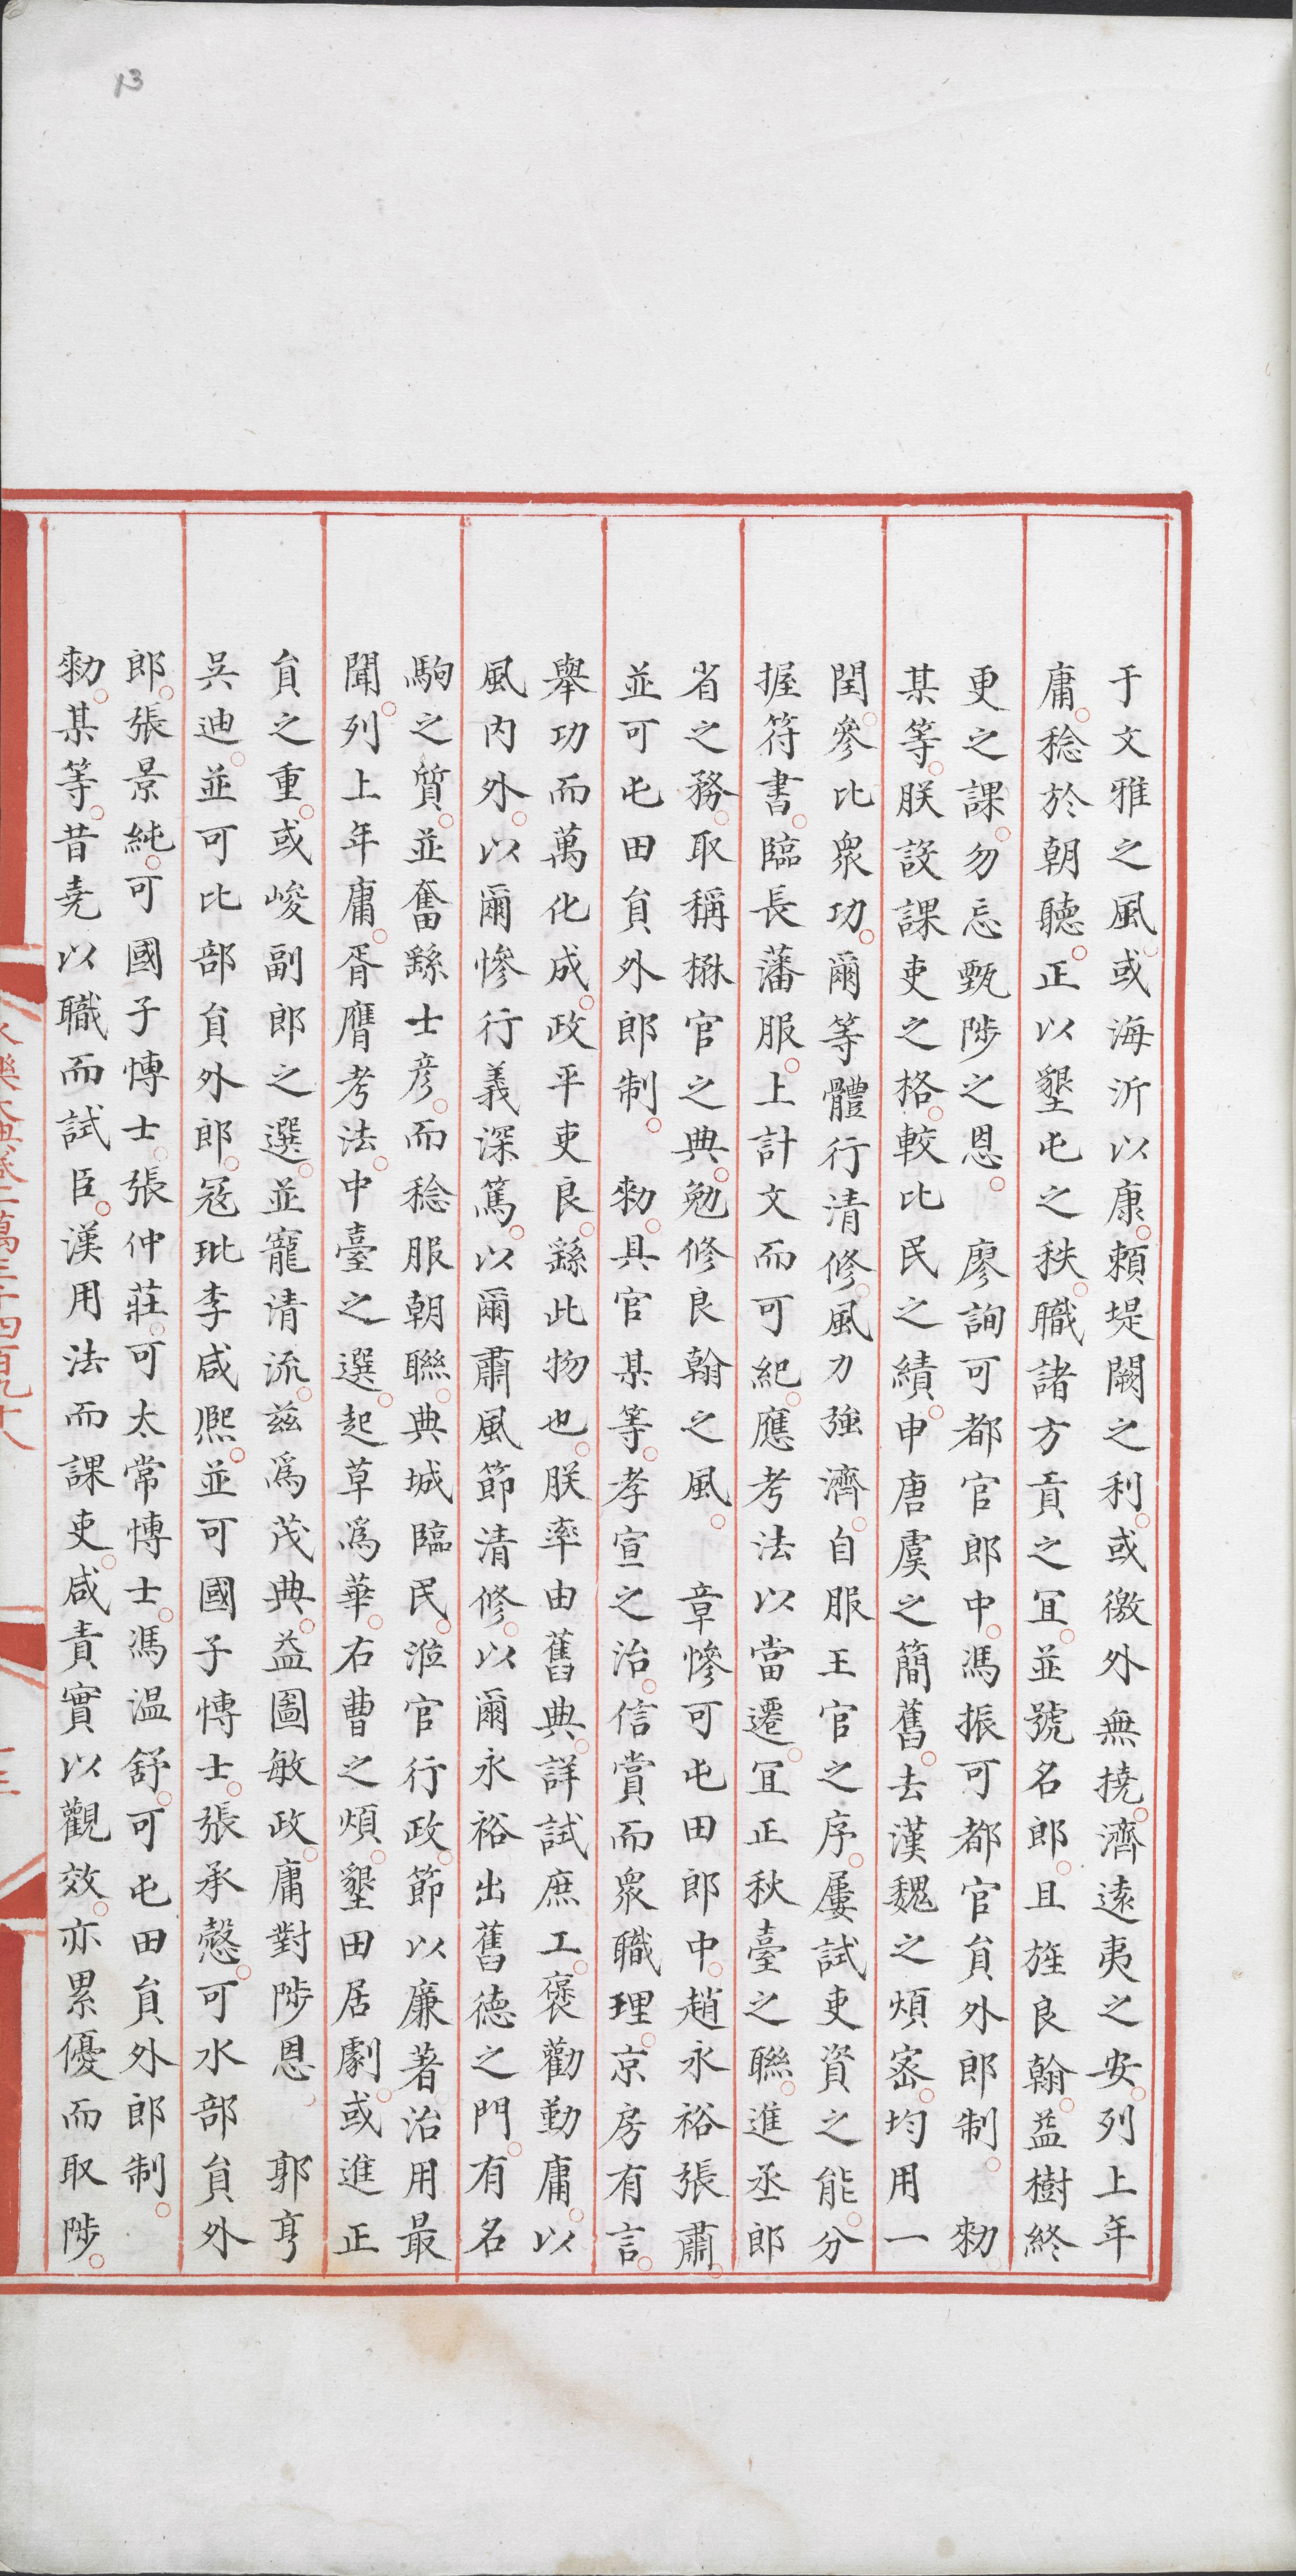 于文雅之風或海沂以康頼堤闕之利或徼外無撓濟逺夷之安列上年
庸稔於朝聽正以墾屯之秩職諸方貢之冝並號名郎且旌良翰益樹終
更之課勿忘甄陟之恩　廖詢可都官郎中馮振可都官貟外郎制　勑
某等朕設課吏之格較比民之績申唐虞之簡舊去漢魏之煩宻均用一
閏參比衆功爾等體行清修風力強濟自服王官之序屢試吏資之能分
握符書臨長藩服上計文而可紀應考法以當遷冝正秋臺之聯進丞郎
省之務取稱楙官之典勉修良翰之風　章慘可屯田郎中趙永裕張肅
並可屯田貟外郎制　勑具官某等孝宣之治信賞而衆職理京房有言
舉功而萬化成政平吏良繇此物也朕率由舊典詳試庶工褒勸勤庸以
風内外以爾慘行義深篤以爾肅風節清修以爾永裕出舊徳之門有名
駒之質並奮繇士彦而稔服朝聯典城臨民涖官行政節以廉著治用最
聞列上年庸胥膺考法中臺之選起草爲華右曹之煩墾田居劇或進正
貟之重或峻副郎之選並寵清流兹爲茂典益圖敏政庸對陟恩　郭亨
吳迪並可比部貟外郎冦玭李咸熈並可國子愽士張承慤可水部貟外
郎張景純可國子愽士張仲莊可太常愽士馮温舒可屯田貟外郎制
勑某等昔堯以職而試臣漢用法而課吏咸責實以觀效亦累優而取陟
13